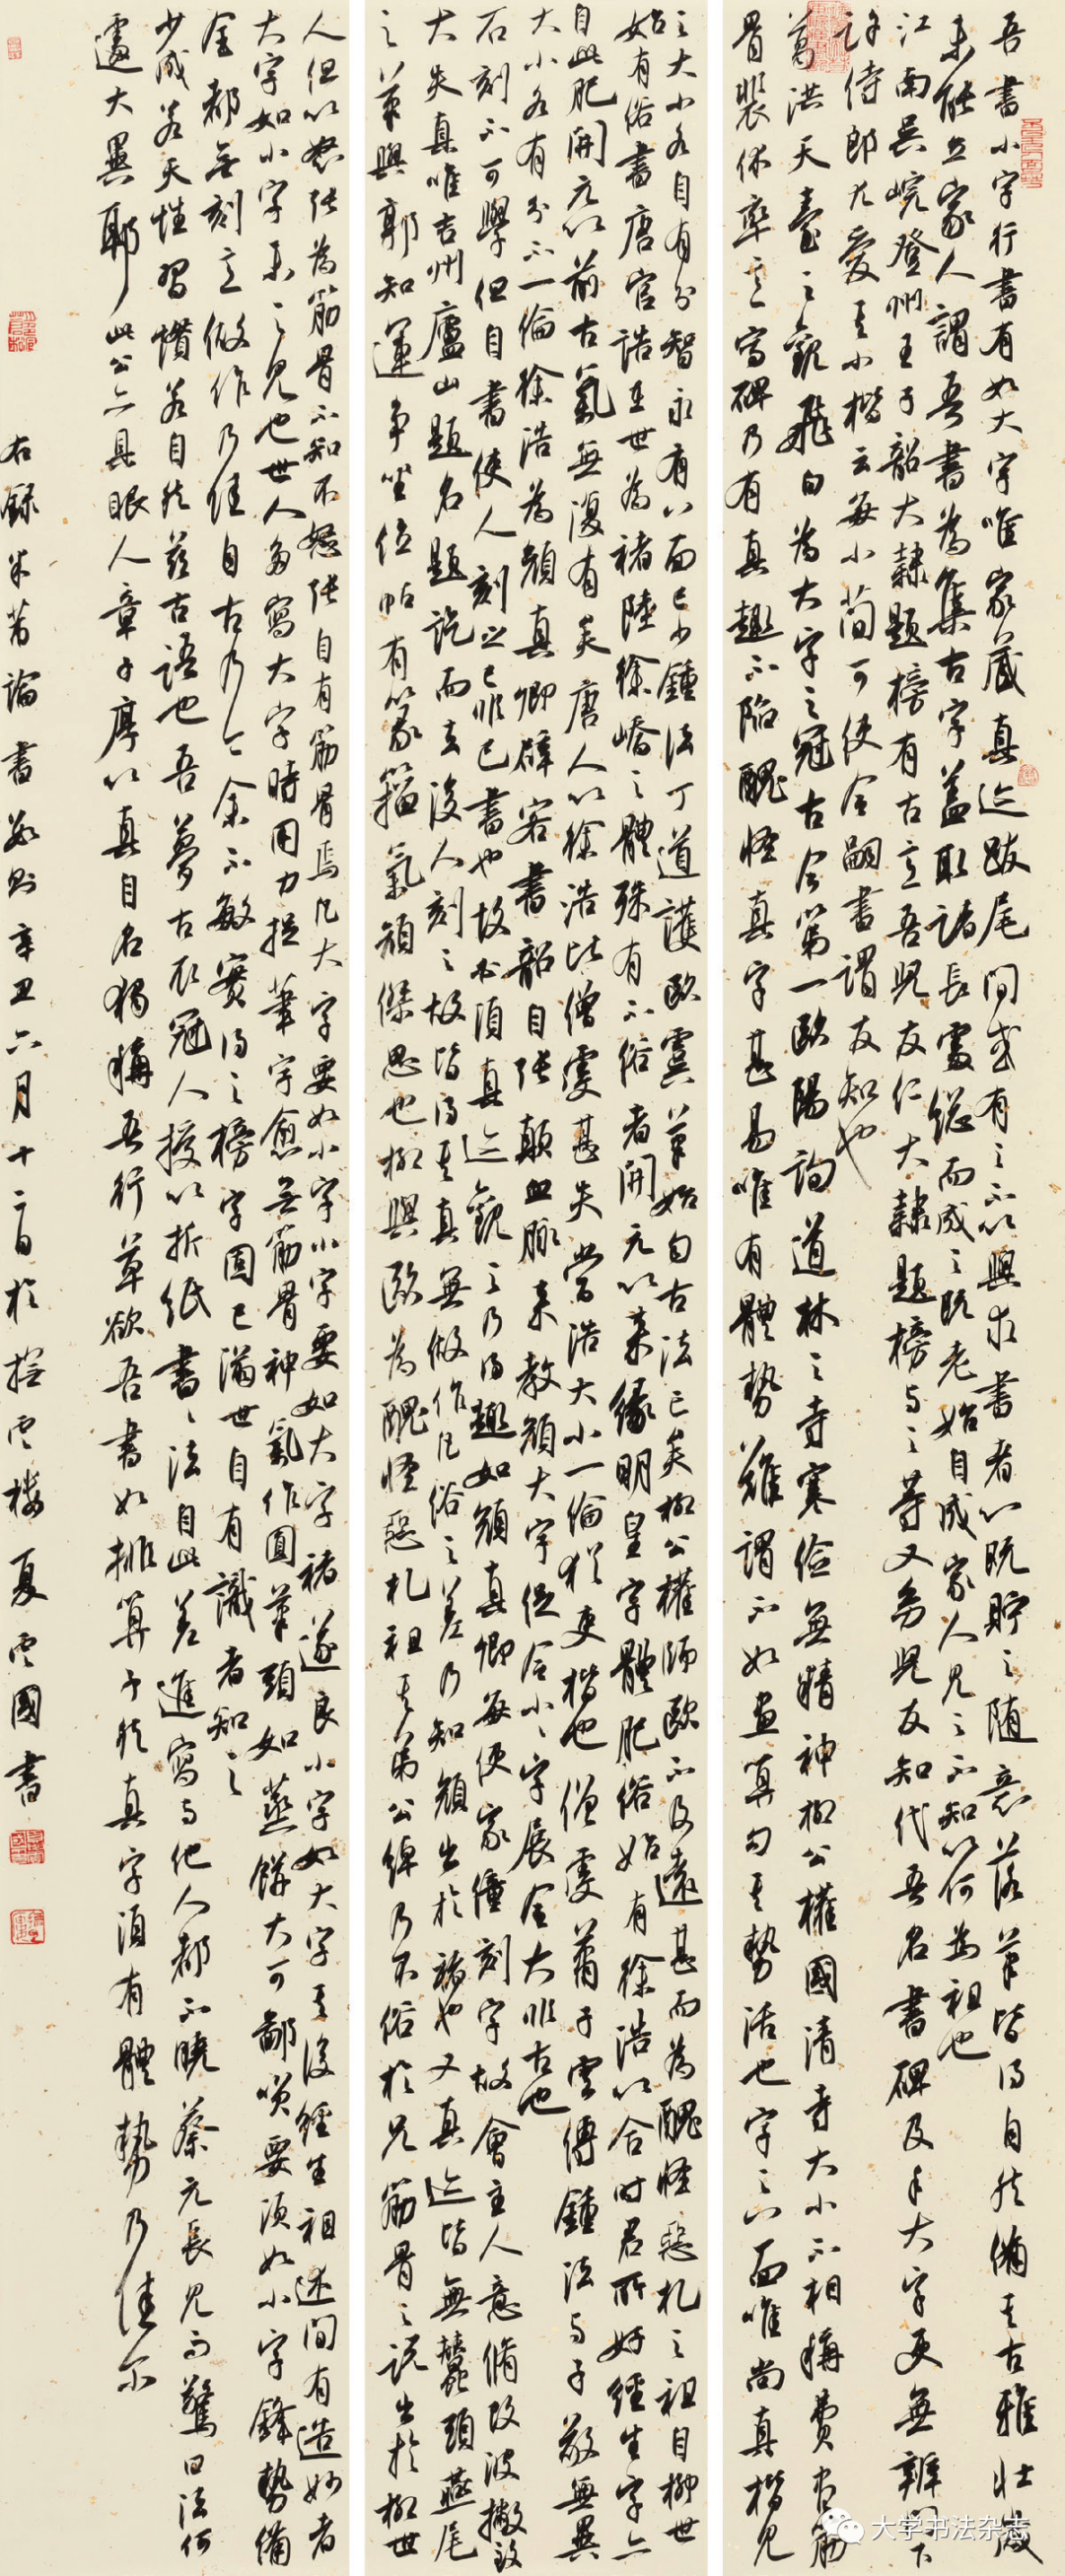 吾書小字行書有如大字唯家藏真跡跋尾間或有之不以與求書者心既貯之隨意落筆皆得自然備其古雅壯歲
未能立家人謂吾書為集古字蓋取諸長處總而成之既老始自成家人見之不知以何為祖也
江南吳皖登州王子韶大隸題榜有古意吾兒友仁大隸題榜與之等又幼兒友知代吾名書碑及手大字更無辨門下
許侍郎尤愛其小楷云每小簡可使令嗣書謂友知也
葛洪天臺之觀飛白為大字之冠古今第一歐陽詢道林之寺寒儉無精神柳公權國清寺大小不相稱費盡筋
骨裴休率意寫碑乃有真趣不陷醜怪真字甚易唯有體勢難謂不如畫算勻其勢活也字之八面唯尚真楷見
之大小各自有分智永有八面已少鍾法丁道護歐虞筆始勻古法亡矣柳公權師歐不及遠甚而為醜怪惡札之祖自柳世
始有俗書唐官誥在世為褚陸徐嶠之體殊有不俗者開元以來緣明皇字體肥俗始有徐浩以合時君所好經生字亦
自此肥開元以前古氣無復有矣唐人以徐浩比僧虔甚失當浩大小一倫猶吏楷也僧虔蕭子雲傳鍾法與子敬無異
大小各有分不一倫徐浩為顏真卿辟客書韻自張顛血脈來教顏大字促令小小字展令大非古也
石刻不可學但自書使人刻之已非己書也故必須真跡觀之乃得趣如顏真卿每使家僮刻字故會主人意修改波撇致
大失真唯吉州廬山題名題訖而去後人刻之故皆得其真無做作凡俗之差乃知顏出於褚也又真跡皆無蠶頭燕尾
之筆與郭知運爭坐位帖有篆籀氣顏傑思也柳與歐為醜怪惡札祖其弟公綽乃不俗於兄筋骨之說出於柳世
人但以怒張為筋骨不知不怒張自有筋骨焉凡大字要如小字小字要如大字褚遂良小字如大字其後經生祖述間有造妙者
大字如小字未之見也世人多寫大字時用力捉筆字愈無筋骨神氣作圓筆頭如蒸餅大可鄙笑要須如小字鋒勢備
全都無刻意做作乃佳自古乃今余不敏實得之榜字固已滿世自有識者知之
少成若天性習慣若自然茲古語也吾夢古衣冠人授以折紙書書法自此差進寫與他人都不曉蔡元長見而驚曰法何
遽大異耶此公亦具眼人章子厚以真自名獨稱吾行草欲吾書如排算子然真字須有體勢乃佳爾
右錄米芾論書數則辛丑六月十二日於挹雲樓夏雲國書
大学书法杂志